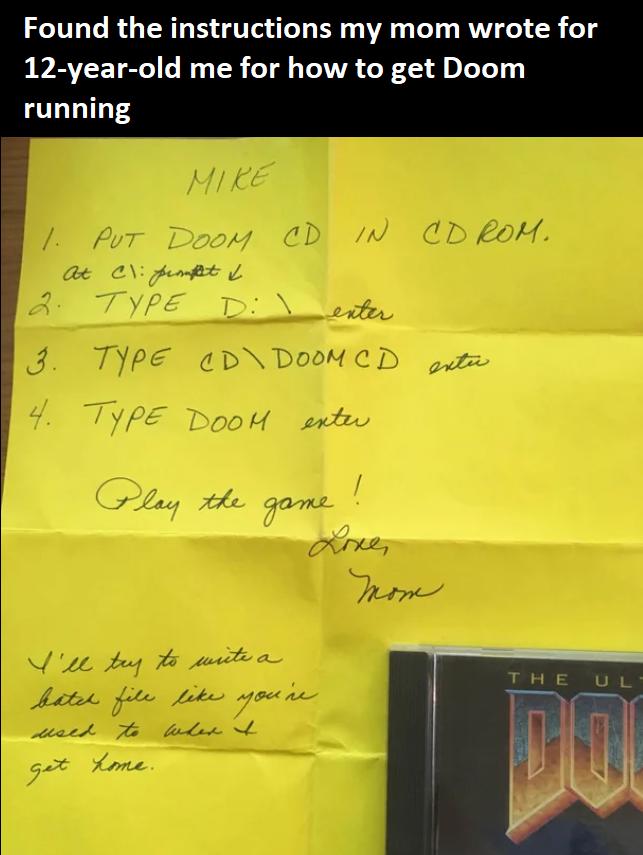 Found the instructions my mom wrote for
12-year-old me for how to get Doom
running
MIKE
1. PUT DOOM CD IN CD ROM.
at C\: prompt ↓
2. TYPE D:\ enter
3. TYPE CD\DOOMCD enter
4. TYPE DOOM enter
Play the game!
Love,
Mom
I'll try to write a
batch file like you're
used to when I
get home.
THE UL
DOO